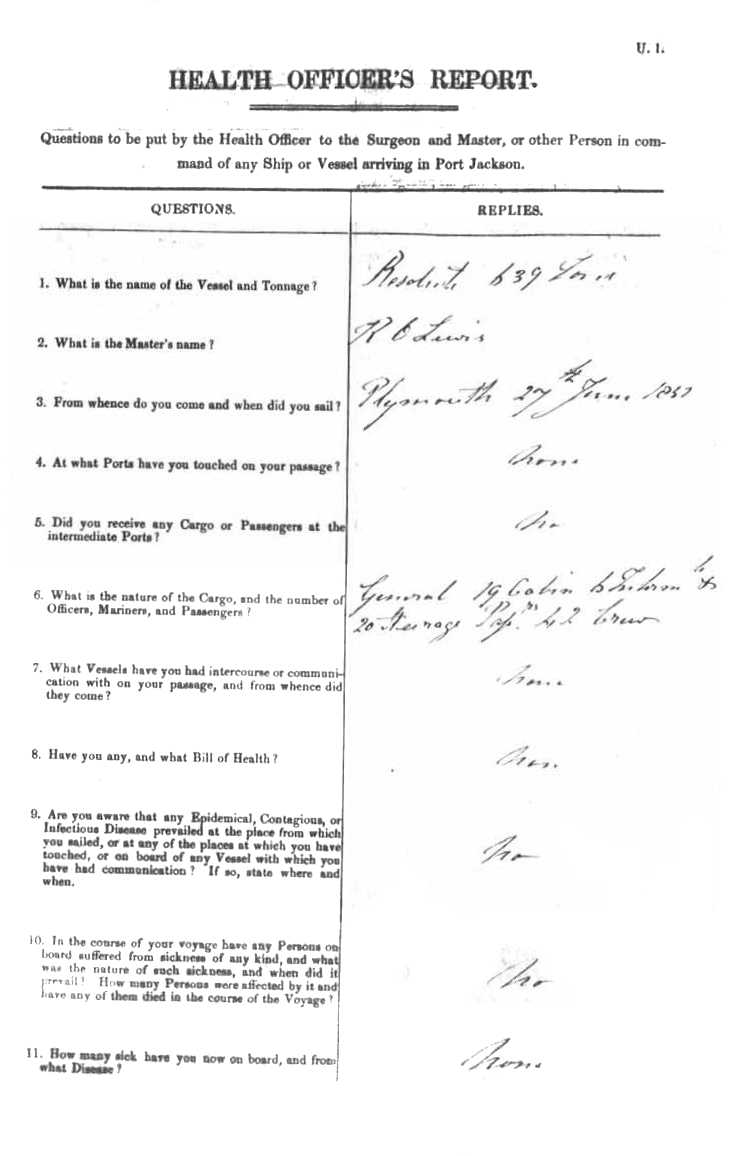 U. 1.
HEALTH OFFICER'S REPORT.
Questions to be put by the Health Officer to the Surgeon and Master, or other Person in com-
mand of any Ship or Vessel arriving in Port Jackson.
QUESTIONS.
REPLIES.
1. What is the name of the Vessel and Tonnage?
Resolute 639 Tons
2. What is the Master's name?
R C Lewis
3. From whence do you come and when did you sail?
Plymouth 27th June
4. At what Ports have you touched on your passage?
None
5. Did you receive any Cargo or Passengers at the
intermediate Ports?
No
6. What is the nature of the Cargo, and the number of
Officers, Mariners, and Passengers?
General 19 Cabin 6 Interm &
20 Steerage 42 Crew
7. What Vessels have you had intercourse or communi-
cation with on your passage, and from whence did
they come?
None
8. Have you any, and what Bill of Health?
None
9. Are you aware that any Epidemical, Contagious, or
Infectious Disease prevailed at the place from which
you sailed, or at any of the places at which you have
touched, or on board of any Vessel with which you
have had communication? If so, state where and
when.
No
10. In the course of your voyage have any Persons on
board suffered from sickness of any kind, and what
was the nature of such sickness, and when did it
prevail? How many Persons were affected by it and
have any of them died in the course of the Voyage?
No
11. How many sick have you now on board, and from
what Disease?
None